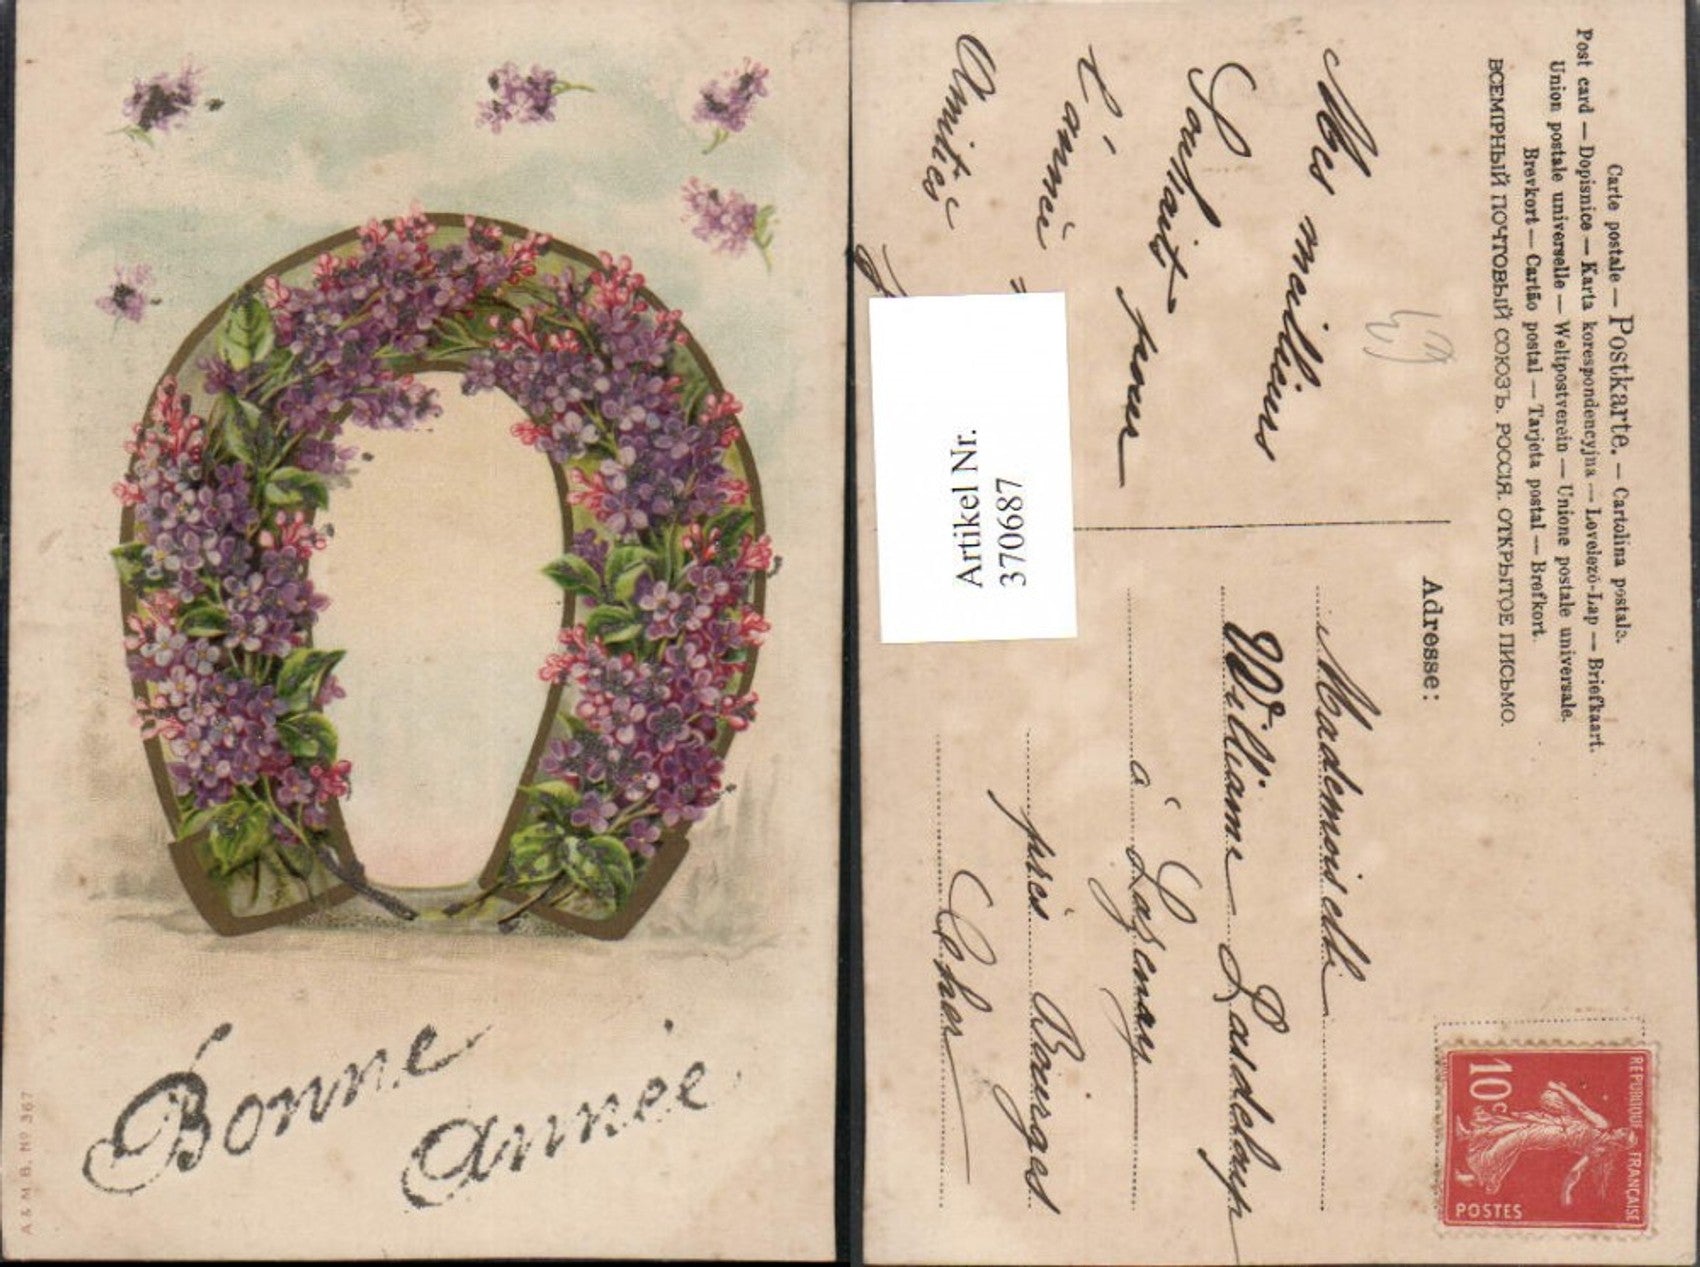 Bonne
année
A & M. B. Nº 367
Carte postale — Postkarte. — Cartolina postale.
Post card — Dopisnice — Karta korespondencyjna — Levelező-Lap — Briefkaart.
Union postale universelle — Weltpostverein — Unione postale universale.
Brevkort — Cartão postal — Tarjeta postal — Brefkort.
ВСЕМІРНЫЙ ПОЧТОВЫЙ СОЮЗЪ. РОССІЯ. ОТКРЫТОЕ ПИСЬМО.
Mes meilleurs
Souhait pour
l'année
Amitiés
Artikel Nr.
370687
Adresse:
Mademoiselle
à Lazenay
près Bourges
Cher
RÉPUBLIQUE FRANÇAISE
10c
POSTES